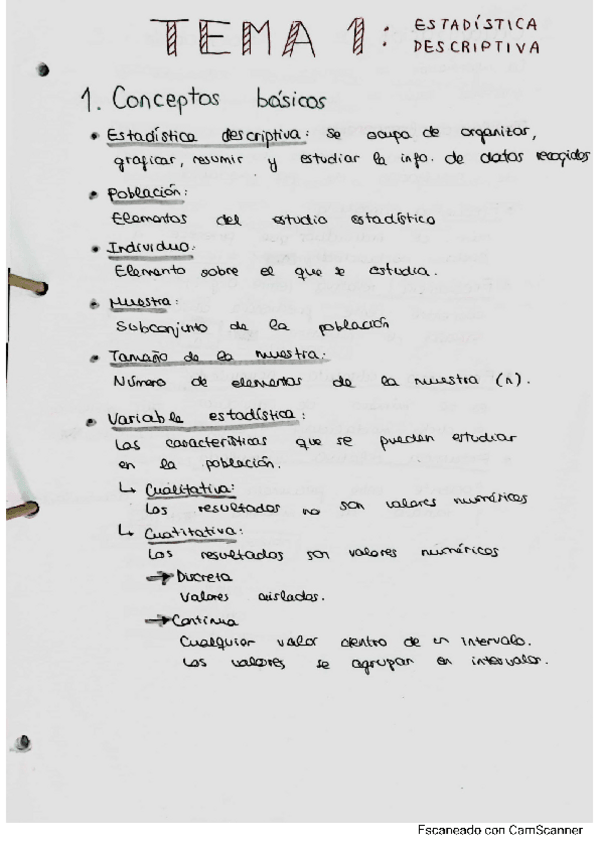 TEMA 1: ESTADÍSTICA
DESCRIPTIVA
1. Conceptos básicos
• Estadística descriptiva: se ocupa de organizar,
graficar, resumir y estudiar la info. de datos recogidos
• Población:
Elementos del estudio estadístico
• Individuo:
Elemento sobre el que se estudia.
• Muestra:
Subconjunto de la población
• Tamaño de la muestra:
Número de elementos de la muestra (n).
• Variable estadística:
Las características que se pueden estudiar
en la población.
↳ Cualitativa:
Los resultados no son valores numéricos
↳ Cuatitativa:
Los resultados son valores numéricos
→ Discreta
Valores aislados.
→ Continua
Cualquier valor dentro de un intervalo.
Los valores se agrupan en intervalor.
Escaneado con CamScanner